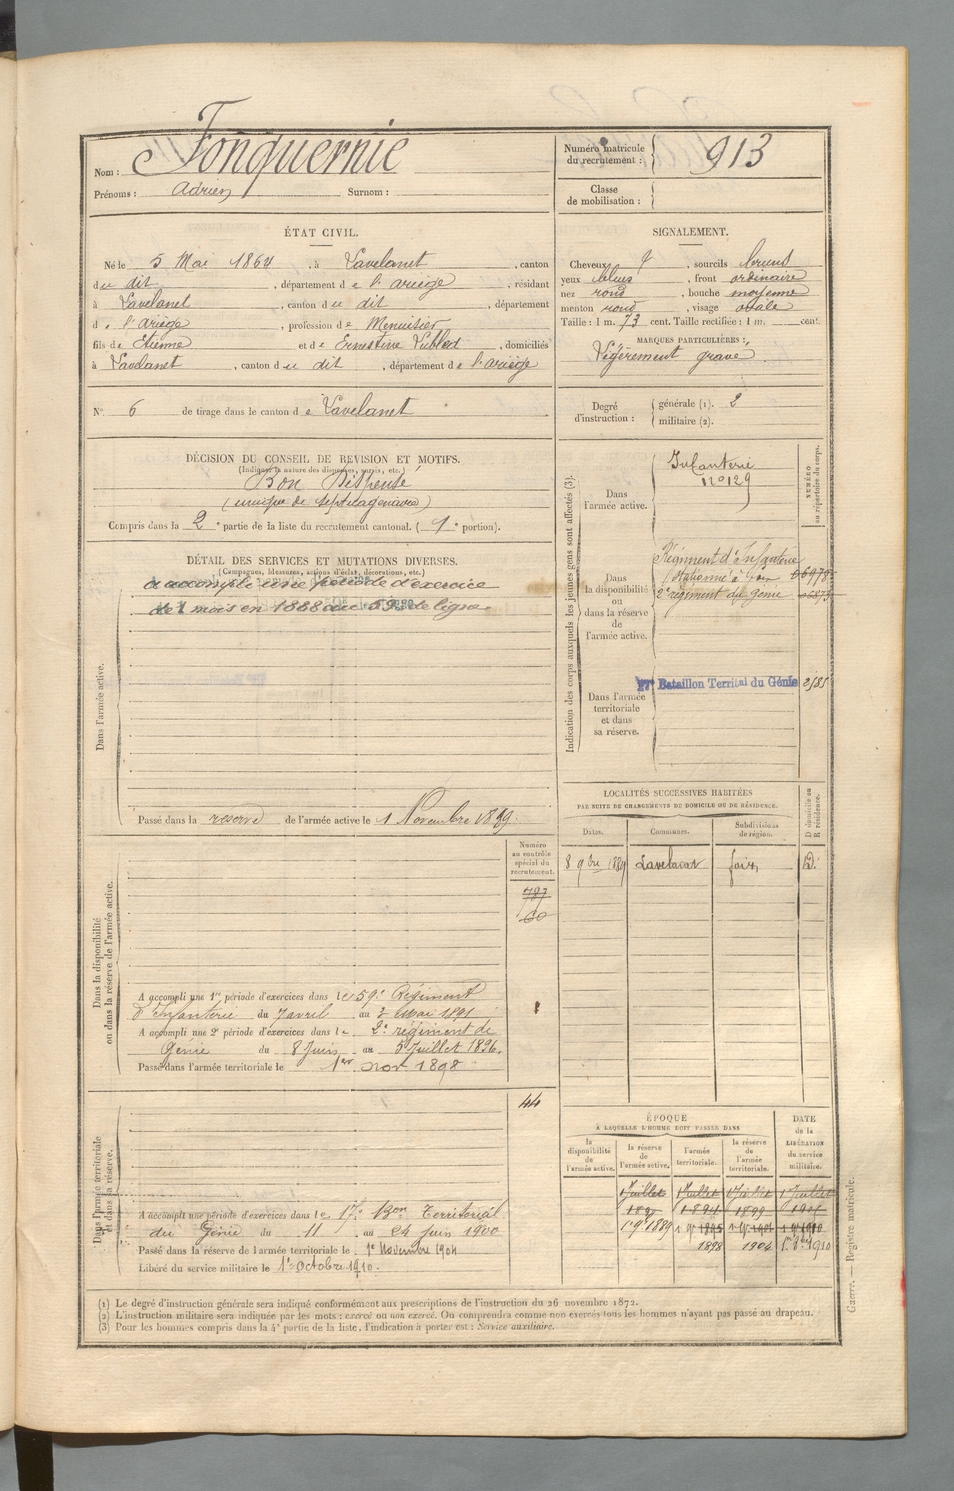 Nom : Fonquernie
Prénoms : Adrien Surnom :
Numéro matricule du recrutement : 913
Classe de mobilisation :
ÉTAT CIVIL.
Né le 5 Mai 1864, à Lavelanet, canton
du dit, département de l'ariège, résidant
à Lavelanet, canton du dit, département
de l'ariège, profession de Menuisier
fils de Etienne et de Ernestine, domiciliés
à Lavelanet, canton du dit, département de l'ariège
N° 6 de tirage dans le canton de Lavelanet
SIGNALEMENT.
Cheveux, sourcils bruns
yeux bleus, front ordinaire
nez rond, bouche moyenne
menton rond, visage ovale
Taille : 1 m. 73 cent. Taille rectifiée : 1 m. cent.
MARQUES PARTICULIÈRES :
Légèrement gravé
Degré d'instruction : générale (1). 2
militaire (2).
DÉCISION DU CONSEIL DE REVISION ET MOTIFS.
(Indiquer la nature des dispenses, sursis, etc.)
Bon Dispensé
(unique de septuagénaire)
Compris dans la 2e partie de la liste du recrutement cantonal. (1e portion).
DÉTAIL DES SERVICES ET MUTATIONS DIVERSES.
(Campagnes, blessures, actions d'éclat, décorations, etc.)
Dans l'armée active.
a accompli une période d'exercice
de 1 mois en 1888 au 59e de ligne
Passé dans la réserve de l'armée active le 1 Novembre 1889.
Indication des corps auxquels les jeunes gens sont affectés (3).
NUMÉRO au répertoire du corps.
Dans l'armée active.
Infanterie
n° 129
Dans la disponibilité ou dans la réserve de l'armée active.
Régiment d'Infanterie
stationné à Foix 6978
2e régiment du génie
Dans l'armée territoriale et dans sa réserve.
17e Bataillon Territal du Génie 2585
LOCALITÉS SUCCESSIVES HABITÉES
PAR SUITE DE CHANGEMENTS DE DOMICILE OU DE RÉSIDENCE.
Dates. Communes. Subdivisions de région. D domicile ou R résidence.
8 9bre 1889 Lavelanet foix D.
Dans la disponibilité ou dans la réserve de l'armée active.
Numéro au contrôle spécial du recrutement.
787
60
A accompli une 1re période d'exercices dans le 59e Régiment
d'Infanterie du 7 avril au 3 Mai 1891
A accompli une 2e période d'exercices dans le 2e régiment de
Génie du 8 Juin au 5 Juillet 1896.
Passé dans l'armée territoriale le 1er nov 1898
Dans l'armée territoriale et dans sa réserve.
44
A accompli une période d'exercices dans le 17e Bon Territorial
du Génie du 11 au 24 Juin 1900
Passé dans la réserve de l'armée territoriale le 1er Novembre 1904
Libéré du service militaire le 1er Octobre 1910.
ÉPOQUE
À LAQUELLE L'HOMME DOIT PASSER DANS
DATE de la LIBÉRATION du service militaire.
la disponibilité de l'armée active. la réserve de l'armée active. l'armée territoriale. la réserve de l'armée territoriale.
1 Juillet 1 Juillet 1 Juillet 1 Juillet
1894 1899
1 9e 1889 1895 1910
1898 1904 1910
(1) Le degré d'instruction générale sera indiqué conformément aux prescriptions de l'instruction du 26 novembre 1872.
(2) L'instruction militaire sera indiquée par les mots : exercé ou non exercé. On comprendra comme non exercés tous les hommes n'ayant pas passé au drapeau.
(3) Pour les hommes compris dans la 4e partie de la liste, l'indication à porter est : Service auxiliaire.
Guerre. — Registre matricule.